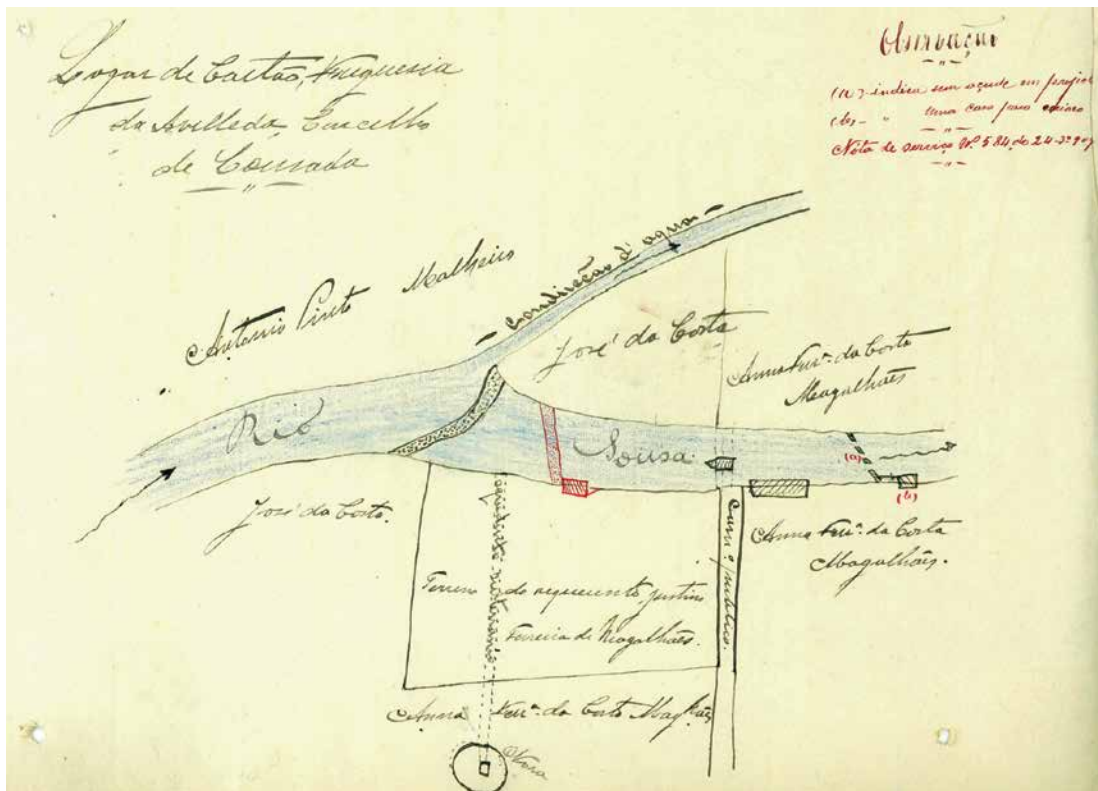 Logar de Cartão, Freguesia
da Avelleda, Concelho
de Louzada
Observação
(a) indica um açude em projecto
(b) - " uma casa para
Nóta de serviço Nº 584 de 24-
Antonio Pinto Malheiro
Condução d'agua
José da Costa
Anna Ferrª. da Costa
Magalhães
Rio Sousa
(a)
(b)
José da Costa.
Anna Ferrª. da Costa
Magalhães.
Cam.º publico.
subterraneo
Terreno do requerente Justino
Ferreira de Magalhães.
Anna Ferrª. da Costa Magalhães
Nora